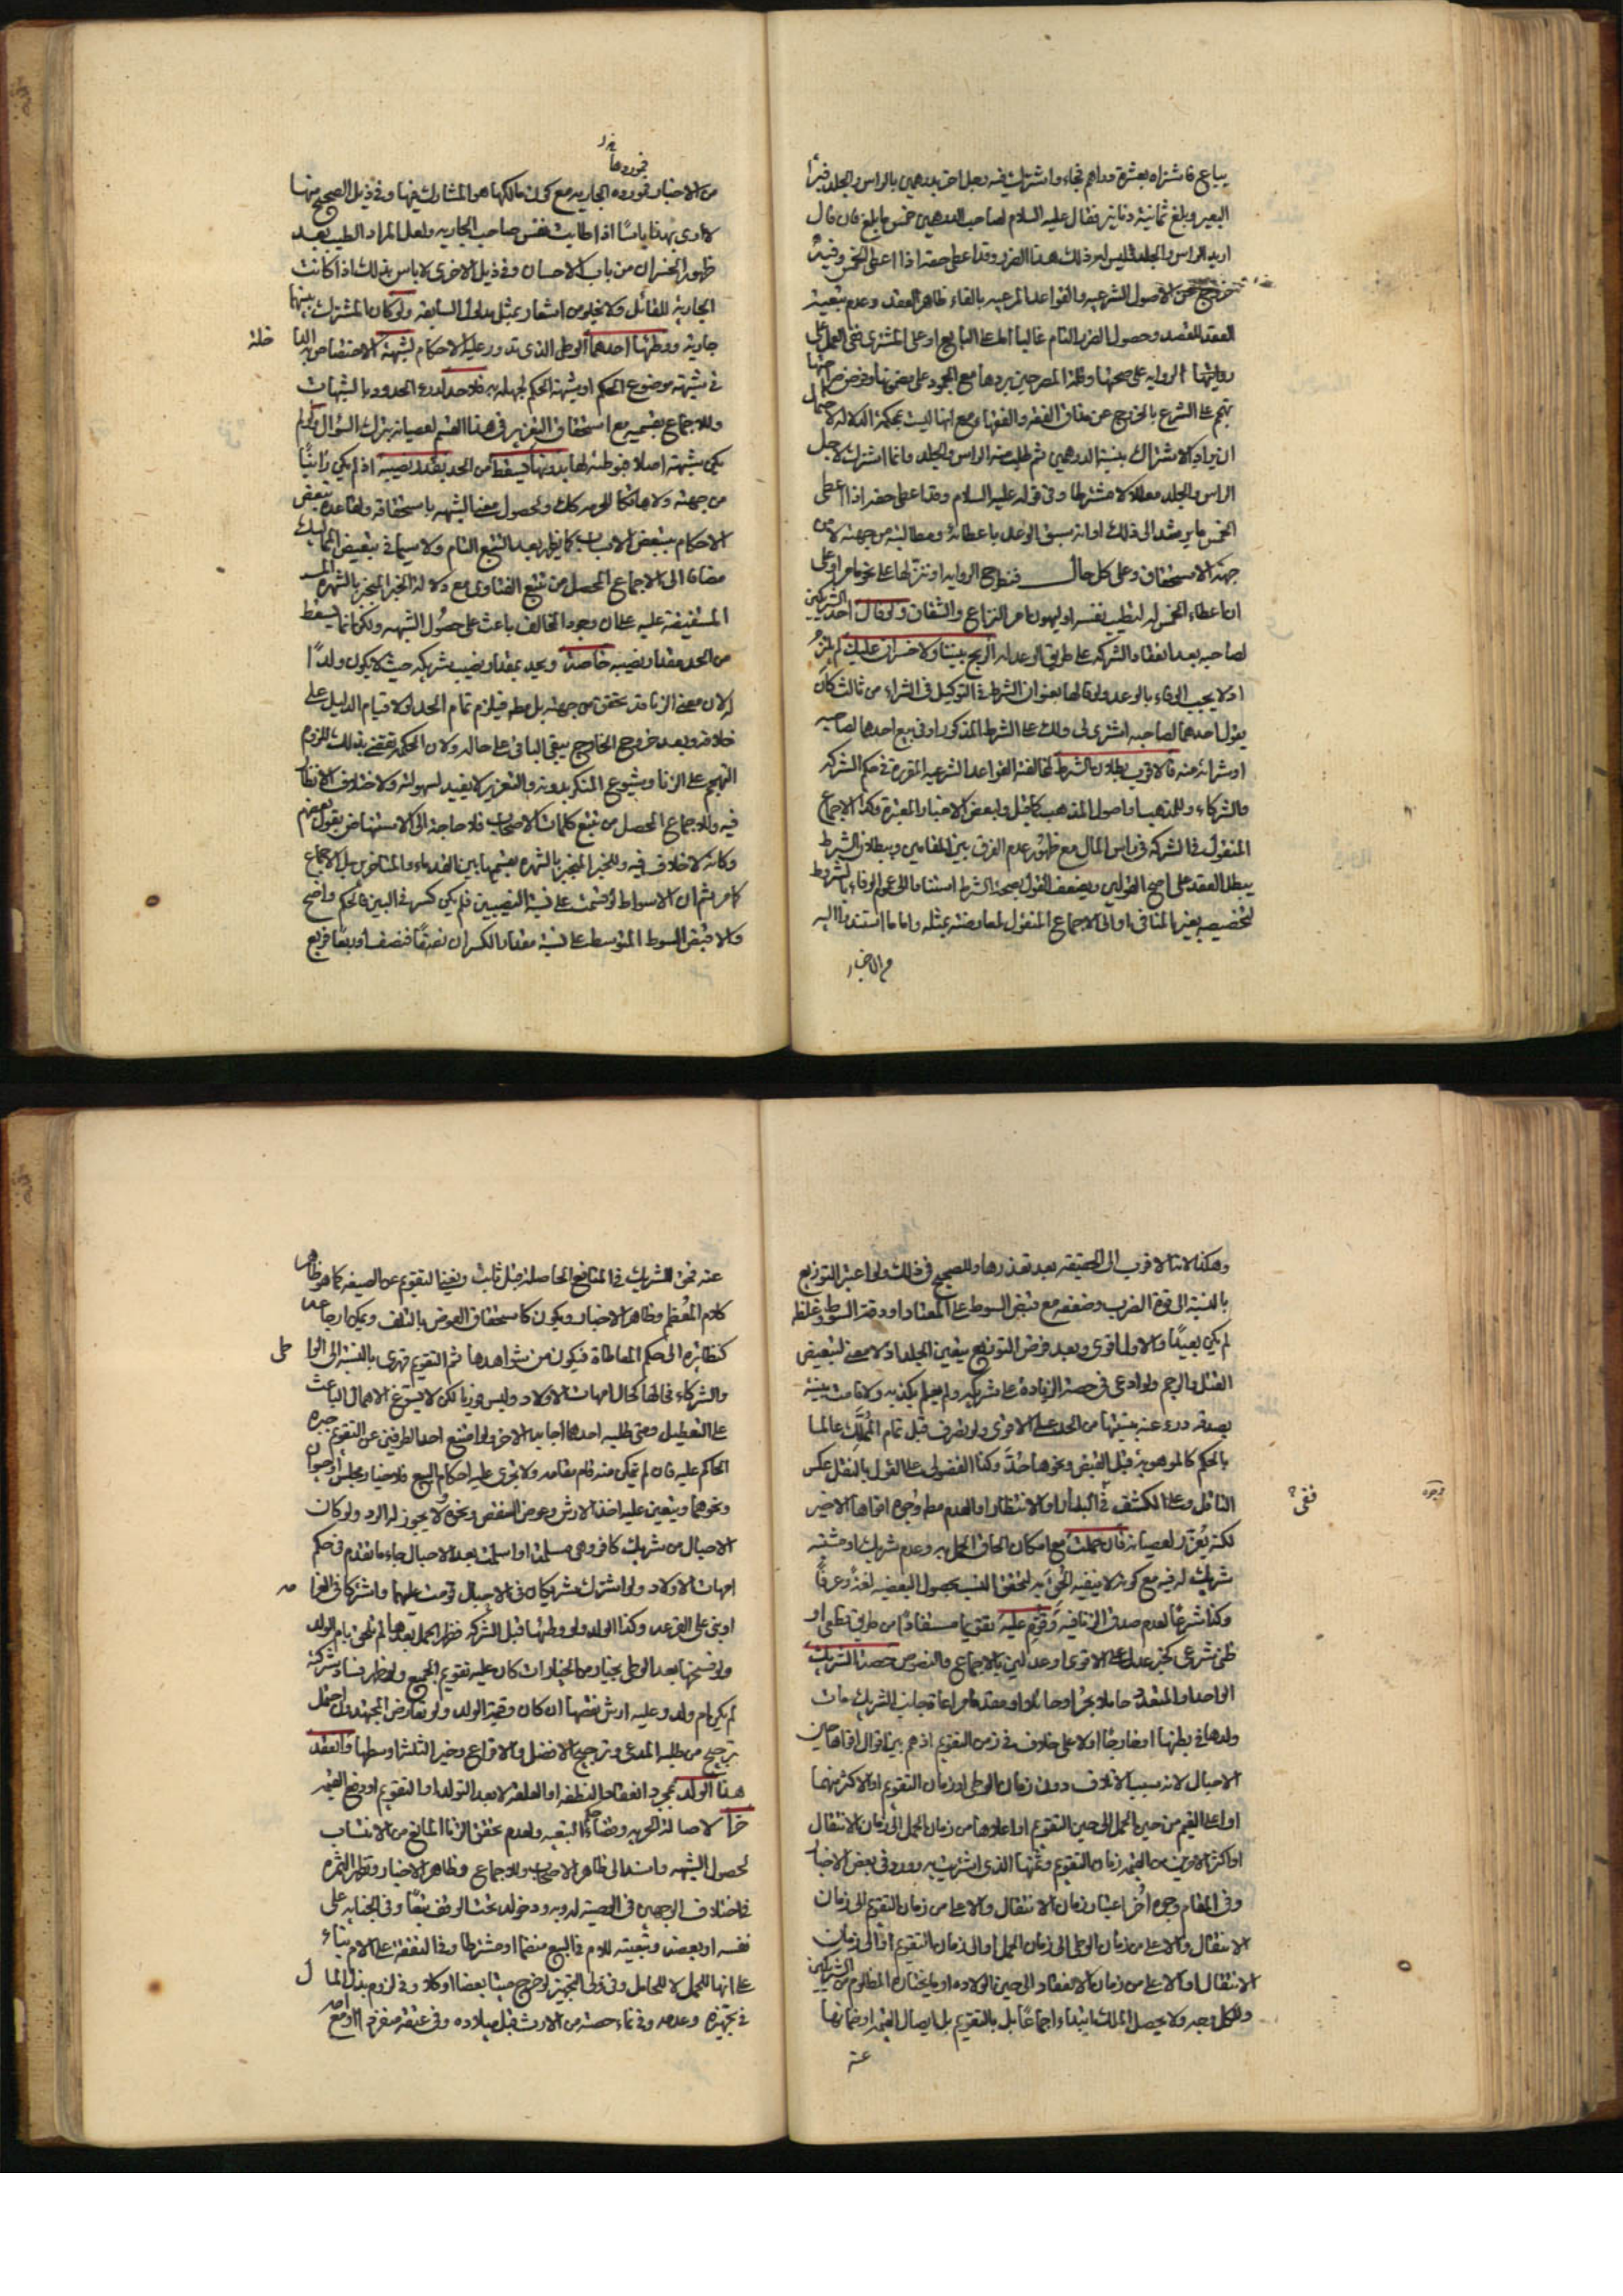 يباع فاشتراه بعشرة دراهم فجاء واشترك فيه رجل اخر بدرهمين بالراس والجلد فبرأ
البعير وبلغ ثمانية دنانير فقال عليه السلام لصاحب الدرهمين خمس ما بلغ فان قال
اريد الراس والجلد فليس له ذلك هذا الضرر وقد اعطى حقه اذا اعطى الخمس وفيه
خروج عن الاصول الشرعيه والقواعد المرعيه بالقاء ظاهر العقد وعدم تبعية
العقد للقصد وحصول الضرر التام غالبا اما على البايع او على المشترى ففى العمل على
الرواية على صحتها وقلة المصرحين بردها مع الجمود على مضمونها وفرض صراحتها
تهجم على الشرع بالخروج عن مذاق الفقه والفقهاء مع انها ليست بمحكمة الدلاله لاحتمال
ان يراد كالاشتراك بنسبة الدرهمين ثم طلب منه الراس والجلد وانما اشترك لاجل
الراس والجلد معللا لا مشترطا وفى قوله عليه السلام وقد اعطى حقه اذا اعطى
الخمس ما يرشد الى ذلك او انه سبق الوعد باعطائه ومطالبته من جهته لا من
جهة الاستحقاق وعلى كل حال فتطرح الرواية او تنزيلها على نحو ما مر او على
ان اعطاء الخمس له لتطييب نفسه او ليهون امر النزاع والشقاق ولو قال احد الشريكين
لصاحبه بعد انعقاد الشركه على طريق الوعد له الربح بيننا ولا خسران عليك لم يلزم
اذ لا يجب الوفاء بالوعد ولو قالها بعنوان الشرط فى التوكيل فى الشراء من ثالث كان
يقول احدهما لصاحبه اشترى لى ولك على الشرط المذكور او فى بيع احدهما لصاحبه
او شرائه منه فالاقرب بطلان الشرط لمخالفته القواعد الشرعيه المقررة فى حكم الشركه
والشركاء وللمذهب واصول المذهب كما قيل ولبعض الاخبار المعتبرة وكذا الاجماع
المنقول فى الشركه فى راس المال مع ظهور عدم الفرق بين المقامين وببطلان الشرط
يبطل العقد على اصح القولين ويضعف القول بصحة الشرط استنادا الى عموم الوفاء بالشروط
لتخصيصه بغير المنافى او الى الاجماع المنقول لمعارضته بمثله واما ما استند اليه
من الاخبار
فموردها
من الاخبار فمورده الجاريه مع كون مالكها هو المشارك فيها وفى ذيل الصحيح منها
لا ارى بهذا باسا اذا طابت نفس صاحب الجاريه ولعل المراد الطيب بعد
ظهور الخسران من باب الاحسان وفى ذيل الاخرى لا باس بذلك اذا كانت
الجارية للقائل ولا يخلو من اشعار بمثل مدلول السابقه ولو كان المشترك بينهما
جارية ووطئها احدهما الوطى الذى تدور عليه الاحكام لشبهة الاختصاص
فى شبهة موضوع الحكم او شبهة الحكم لجهله به فلا حد لدرء الحدود بالشبهات
وللاجماع بقسميه مع استحقاق التعزير فى هذا القسم لعصيانه بترك السؤال ولو لم
يكن شبهة اصلا فوطئه لها بدونها فيسقط من الحد بقدر نصيبه اذ لم يكن زانيا
من جهته ولا هاتكا للحرمه كك ولحصول معنى الشبهه باستحقاقه ولقاعدة تبعض
الاحكام بتبعض الاسباب كما يظهر بعد التتبع التام ولا سيما فى تبعيض المماليك
مضافا الى الاجماع المحصل من تتبع الفتاوى مع دلالة الخبر المنجبر بالشهره
المستفيضة عليه على ان وجود المخالف باعث على حصول الشبهه ولكن انما يسقط
من الحد مقدار نصيبه خاصة ويحد بمقدار نصيب شريكه حيث لا يكون ولدا
له لان معنى الزنا قد تحقق من جهته بل مطه فيلزم تمام الحد لولا قيام الدليل على
خلافه وبعد خروج الخارج يبقى الباقى على حاله ولان الحكمة تقتضى بذلك للزوم
التهجم على الزنا وشيوع المنكر بدونه والتعزير لا يفيد لسهولته ولاختلاف الانظار
فيه وللاجماع المحصل من تتبع كلمات الاصحاب فلا حاجة الى الاستنهاض بقول بعضهم
وكانه لا خلاف فيه وللخبر المنجبر بالشهره بقسميها بين القدماء والمتاخرين بل الاجماع
كما مر ثم ان الاسواط لو قسمت على نسبة النصيبين فلم يكن كسر فى البين فالحكم واضح
والا فيقبض السوط المتوسط على نسبة مقدار الكسر ان نصفا فنصف او ربعا فربع
وهكذا لانه الاقرب الى الحقيقه بعد تعذرها وللصحيح فى ذلك ولو اعتبر التوزيع
بالنسبة الى قوة الضرب وضعفه مع قبض السوط على المعتاد او دقة السوط وغلظه
لم يكن بعيدا والاول اقوى وبعد فرض التوزيع يتعين الجلد اذ لا معنى لتبعيض
القتل والرجم ولو ادعى فى حصة الزيادة على شريكه ولم يعلم بكذبه ولا قامت بينة
بصدقه درء عنه بنسبتها من الحد على الاقوى ولو تصرف قبل تمام المملك عالما
بالحكم كالموهوبة قبل القبض ونحوها حد وكذا الفضولى على القول بالنقل عكس
الناقل وعلى الكشف فى البدار او الانتظار او العدم مطه وجوه اقواها الاخير
لكنه يعزر لعصيانه فان حملت مع امكان الحاق الحمل به وعدم شريك او مشتبه
شريك له فيه مع كونه لا ينفيه الحق به لتحقق النسب بحصول البعضيه لغة وعرفا
وكذا شرعا لعدم صدق الزنا فيه وقوم عليه تقويما مستفادا من طريق قطعى او
ظنى شرعى كخبر عدل على الاقوى او عدلين بالاجماع والنصوص حصة الشريك
الواحد او المتعدد حاملا بحر او حائلا او مقدما مراعاة جانب الشريك مات
ولدها فى بطنها او خارجا او لا على خلاف فى زمن التقويم اذ هم بين اقوال اقواها حين
الاحبال لانه سبب الاتلاف دون زمان الوطى او زمان التقويم او الاكثر منهما
او اعلى القيم من حين الحمل الى حين التقويم او اعلاها من زمان الحمل الى زمان الانتقال
او اكثر الامرين من القيمه زمان التقويم وثمنها الذى اشتريت به وورد فى بعض الاخبار
وفى المقام وجوه اخر اعتبار زمان الانتقال والاعلى من زمان التقويم الى زمان
الانتقال والاعلى من زمان الوطى الى زمان الحمل او الى زمان التقويم او الى زمان
الانتقال او الاعلى من زمان الانعقاد الى حين الولادة او ما يختاره المظلوم من الشريكين
وللكل وجه ولا يحصل الملك ابتداء اجماعا بل بالتقويم بل بايصال القيمه او ضمانها
عنه
عنه فحق الشريك فى المنافع الحاصلة قبل ثابت ويغنى التقويم عن الصيغه كما هو ظاهر
كلام المعظم وظاهر الاخبار ويكون كاستحقاق العوض بالتلف ويمكن ارجاعه
كنظائره الى حكم المعاطاة فيكون من شواهدها ثم التقويم قهرى بالنسبة الى الوا
طى
والشركاء فحالها كحال امهات الاولاد وليس فوريا لكن لا يسوغ الاهمال الباعث
على التعطيل ومتى طلبه احدهما اجابه الاخر ولو امتنع احد الطرفين عن التقويم جبره
الحاكم عليه فان لم يتمكن منه قام مقامه ولا يجرى عليه احكام البيع فلا خيار مجلس او حيوان
ونحوهما ويتعين عليه اخذ الارش وعوض النقص ونحوه ولا يجوز له الرد ولو كان
الاحبال من شريك كافر وهى مسلمة او اسلمت بعد الاحبال جاء ما تقدم فى حكم
امهات الاولاد ولو اشترك شريكان فى الاحبال قومت عليهما واشتركا فى الغرا
مه
او بنى على القرعه وكذا الولد ولو وطئها قبل الشركه فظهر الحمل بعدها لم تلحق بام الولد
ولو فسخها بعد الوطى بخيار من الخيارات كان عليه تقويم الجميع ولو ظهر فساد شركته
لم يكن ام ولد وعليه ارش نقصها ان كان وقيمة الولد ولو تعارض المجتهدان احتمل
ترجيح من طلبه المدعى وترجيح الافضل والاقراع وخير الثلثة اوسطها وانعقد
هذا الولد بمجرد انعقاد النطفه او العلقه لا بعد التولد او التقويم او دفع القيمه
حرا لاصالة الحريه وقضاء حكم التبعيه ولعدم تحقق الزنا المانع من الانتساب
لحصول الشبهه واسند الى ظاهر الاصحاب وللاجماع وظاهر الاخبار وتظهر الثمره
فى اختلاف الوجهين فى الوصية له وبه ودخوله تحت الوقف تبعا وفى الجنايه على
نفسه او بعضه وتبعيته للام فى البيع منضما او مشترطا وفى النفقه على الام بناء
على انها للحمل لا للحامل وفى ولى التجهيز لو خرج ميتا بعضا او كلا وفى لزوم بذل الما
ل
فى تجهيزه وعدمه وفى نماء حصته من الارث قبل ميلاده وفى عتقه منفردا او مع امه